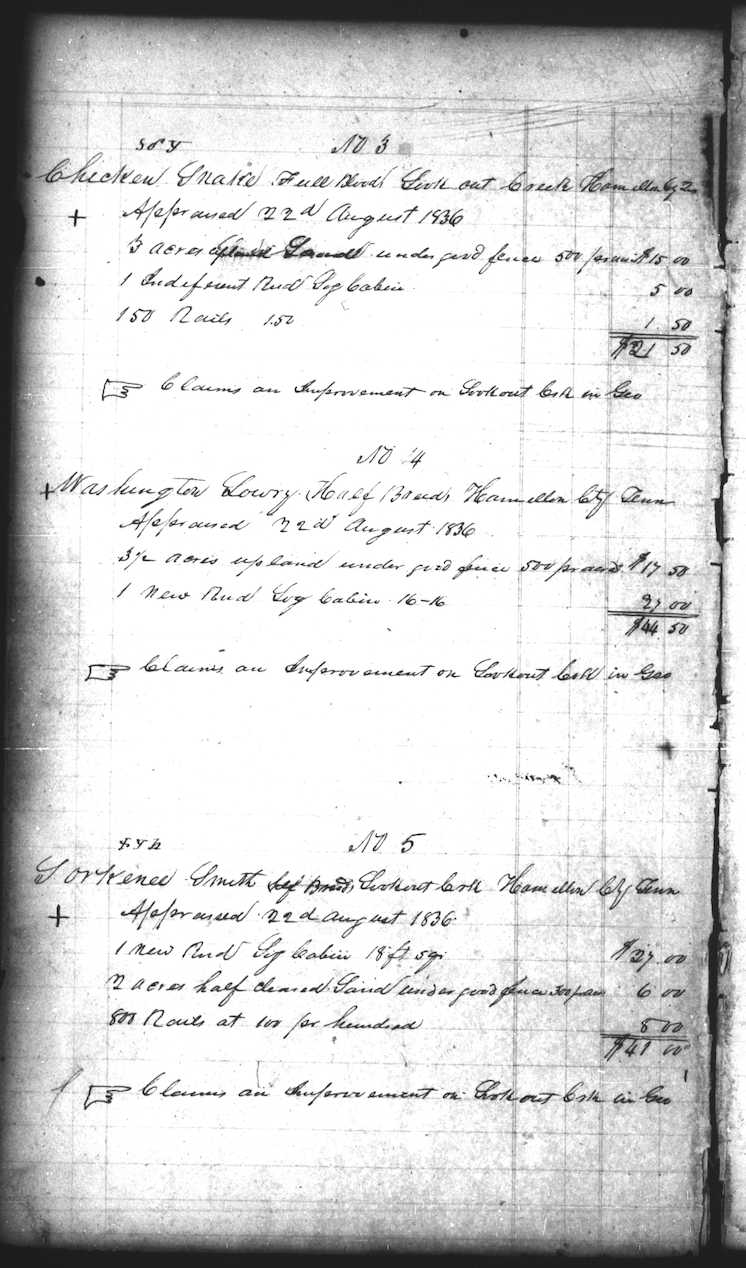 No 3
Chicken Snake Full Blood Look out Creek Hamilton Cty
+ Appraised 22d August 1836
3 acres Land under good fence 500 pr acre $15 00
1 Indiferent Rnd Log Cabin 5 00
150 Rails 1.50 1 50
$21 50
☞ Claims an Improvement on Lookout Crk in Geo
No 4
+ Washington Lowry Half Breed Hamilton Cty Tenn
Appraised 22d August 1836
3½ acres upland under good fence 500 pr acre $17 50
1 New Rnd Log Cabin 16-16 27 00
$44.50
☞ Claims an Improvement on Lookout Crk in Geo
No 5
Smith Lookout Crk Hamilton Cty Tenn
+ Appraised 22d August 1836
1 New Rnd Log Cabin 18 ft sqr $27.00
2 acres half cleared Land under good fence 300 pr acre 6 00
800 Rails at 100 pr hundred 8 00
$41 00
☞ Claims an Improvement on Look out Crk in Geo